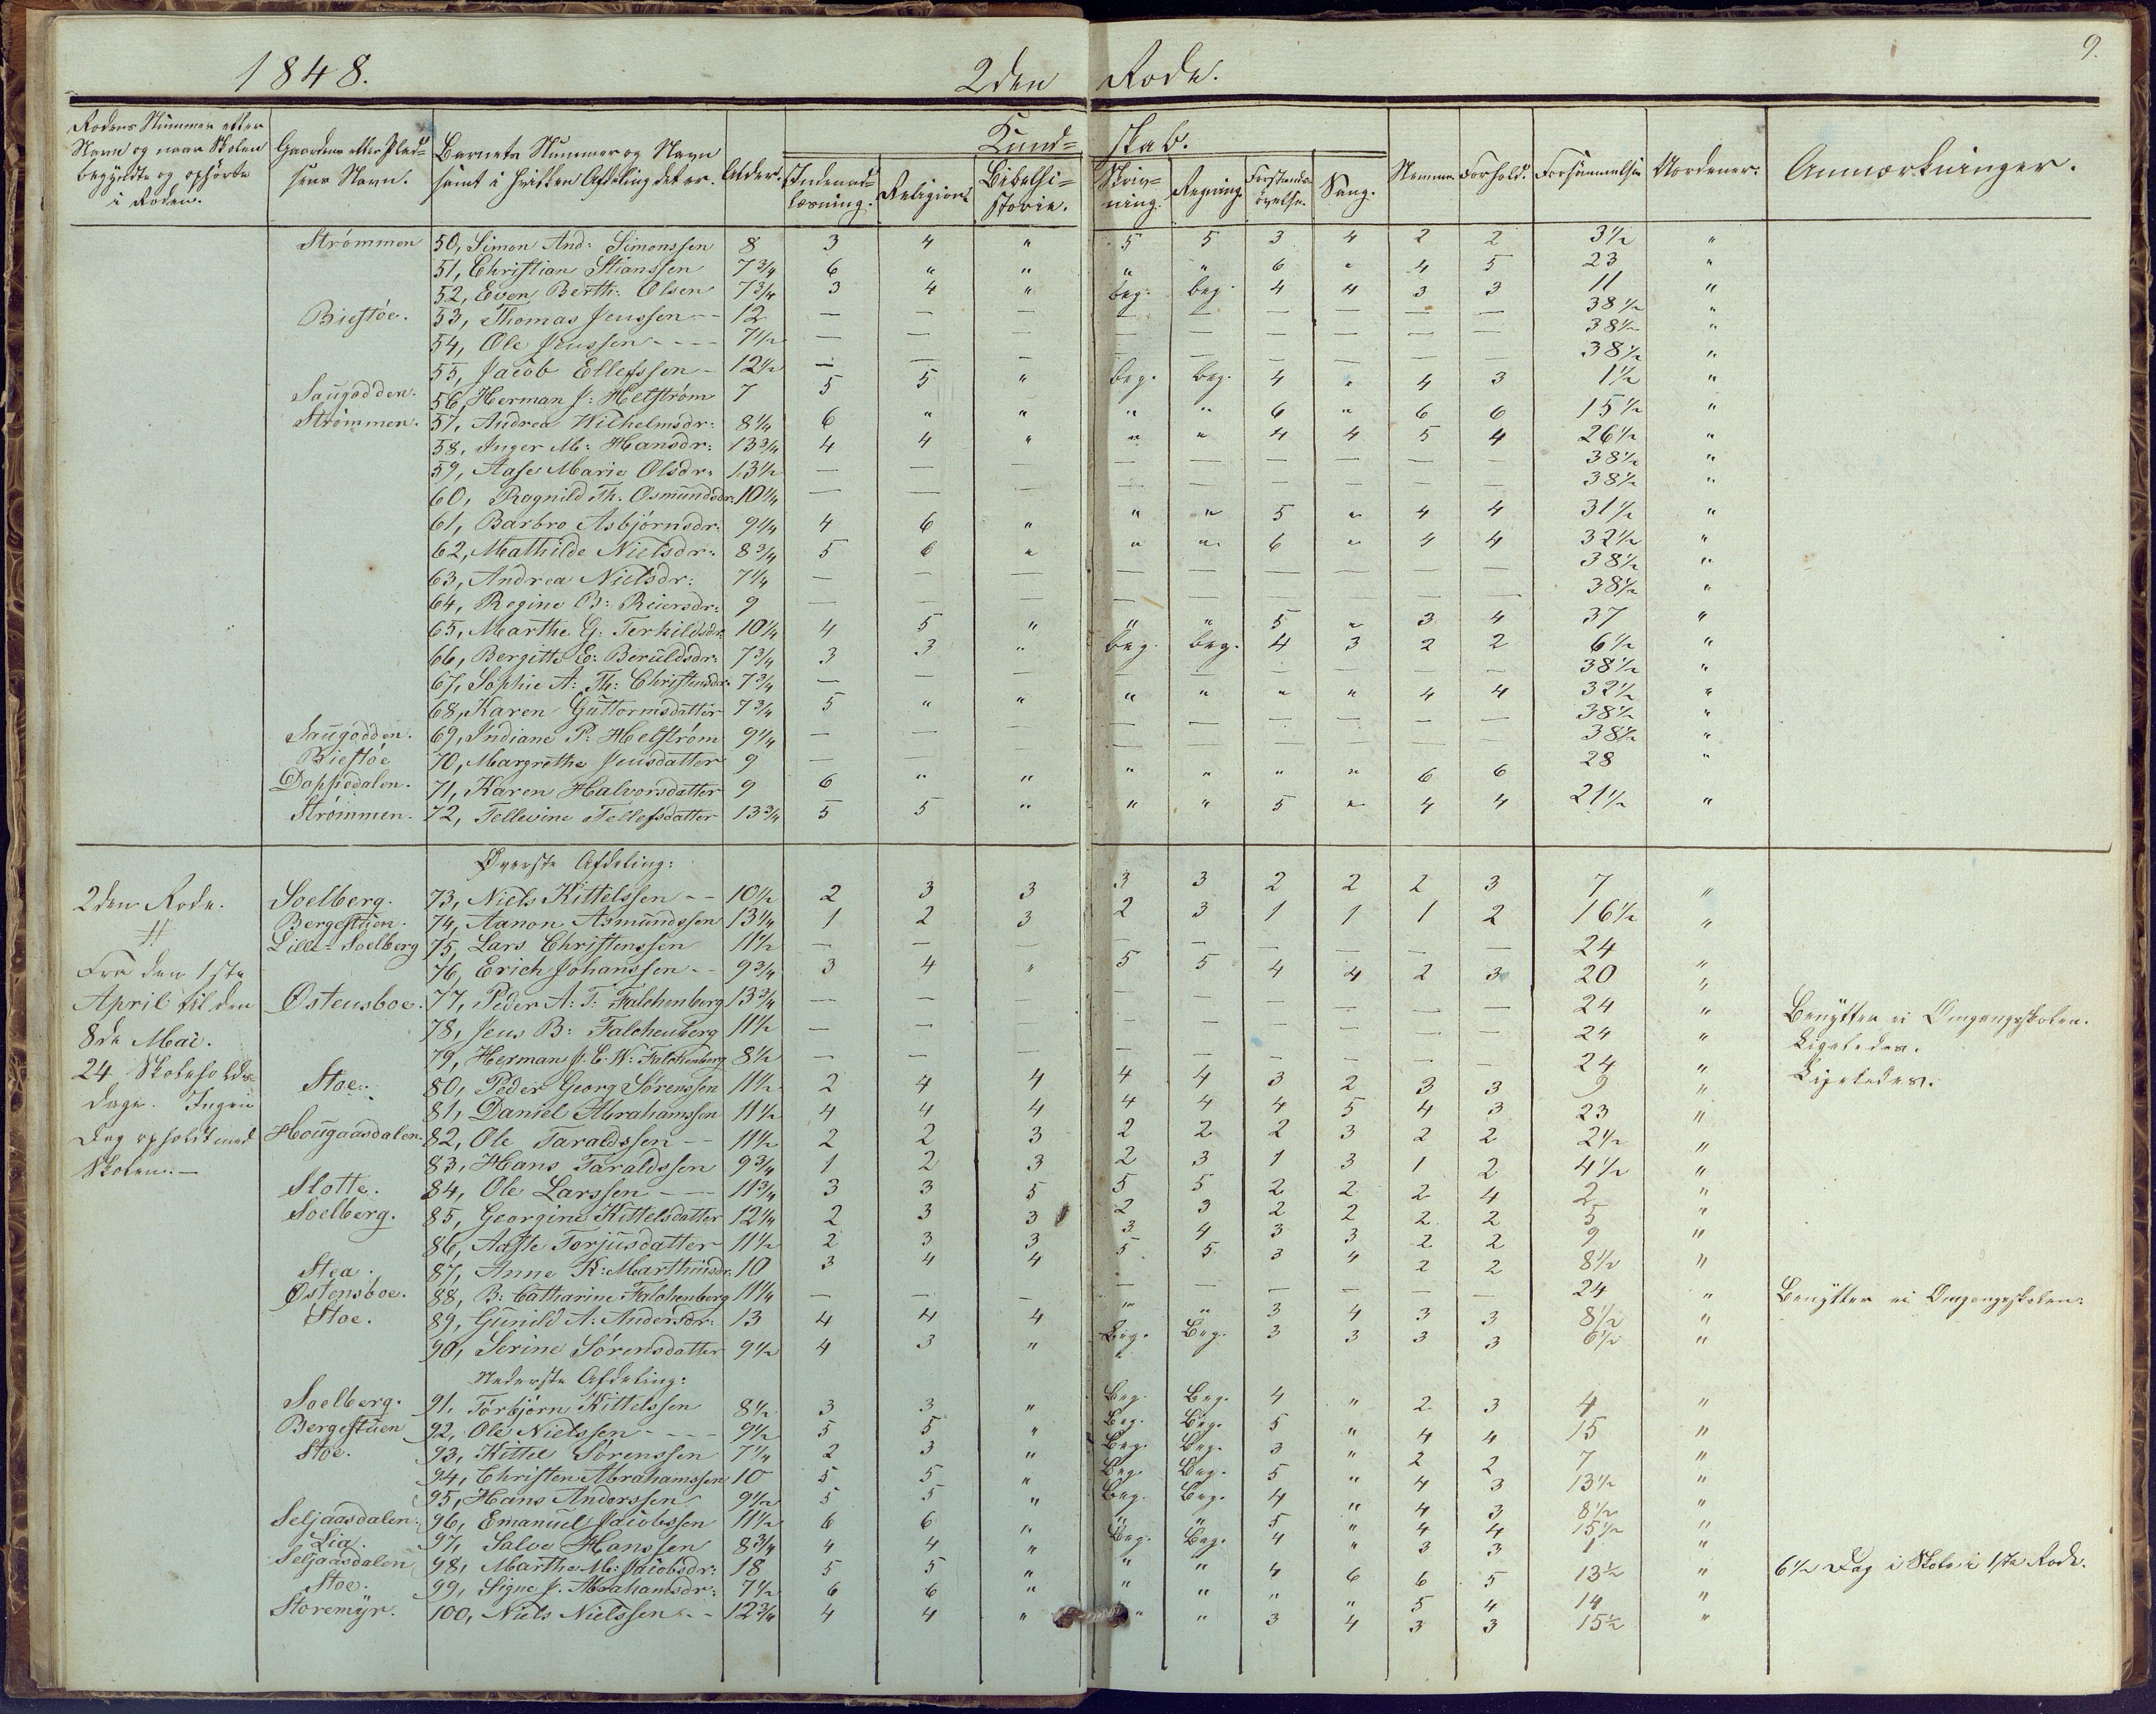 9.
1848. 2den Rode.
Rodens Nummer eller Gaardens eller Plad= Barnets Nummer og Navn Alder. Kund= skab. Nemme. Forhold. Forsømmelser Uordener. Anmærkninger.
Navn og naar Skolen sens Navn. samt i hvilken Afdeling det er. Indenad= Religion. Bibelhi= Skriv= Regning. Forstands= Sang.
begyndte og ophørte læsning. storie. ning. øvelse.
i Roden.
Strømmen 50, Simon And: Simonssen 8 3 4 " 5 5 3 4 2 2 3½ "
51, Christian Stianssen 7¾ 6 " " " " 6 " 4 5 23 "
52, Even Berth: Olsen 7¾ 3 4 " beg. beg. 4 4 3 3 11 "
Biestøe. 53, Thomas Jenssen -- 12 — — — — — — — — — 38½ "
54, Ole Jenssen ---- 7½ — — — — — — — — — 38½ "
55, Jacob Ellefssen - 12½ — — — — — — — — — 38½ "
Saugodden. 56, Herman J: Helstrøm 7 5 5 " beg. beg. 4 " 4 3 1½ "
Strømmen. 57, Andrea Wilhelmsdr: 8¼ 6 " " " " 6 " 6 6 15½ "
58, Inger M: Hansdr: 13¾ 4 4 " " " 4 4 5 4 26½ "
59, Aase Marie Olsdr: 13½ — — — — — — — — — 38½ "
60, Ragnild Th. Osmundsdr: 10¼ — — — — — — — — — 38½ "
61, Barbro Asbjørnsdr: 9¼ 4 6 " " " 5 " 4 4 31½ "
62, Mathilde Nielsdr: 8¾ 5 6 " " " 6 " 4 4 32½ "
63, Andrea Nielsdr: 7¼ — — — — — — — — — 38½ "
64, Regine B: Reiersdr: 9 — — — — — — — — — 38½ "
65, Marthe G: Terkildsdr 10¼ 4 5 " " " 5 " 3 4 37 "
66, Bergitte E: Beruldsdr: 7¾ 3 3 " beg. beg. 4 3 2 2 6½ "
67, Sophie A: Th: Christensdr. 7¾ — — — — — — — — — 38½ "
68, Karen Guttormsdatter 7¾ 5 " " " " " " 4 4 32½ "
Saugodden. 69, Indiane P: Helstrøm 9¼ — — — — — — — — — 38½ "
Biestøe 70, Margrethe Jensdatter 9 — — — — — — — — — 38½ "
Dappedalen. 71, Karen Halvorsdatter 9 6 " " " " " " 6 6 28 "
Strømmen. 72, Tellevine Tellefsdatter 13¾ 5 5 " " " 5 " 4 4 21½ "
Øverste Afdeling:
2den Rode. Soelberg. 73, Niels Kittelssen -- 10½ 2 3 3 3 3 2 2 2 3 7 "
Bergestuen. 74, Aanon Asmundssen 13¼ 1 2 3 2 3 1 1 1 2 16½ "
Lille-Soelberg 75, Lars Christenssen 11½ — — — — — — — — — 24 "
Fra den 1ste 76, Erich Johanssen -- 9¾ 3 4 " 5 5 4 4 2 3 20 "
April til den Østensboe. 77, Peder A: T: Falchenberg 13¾ — — — — — — — — — 24 " Benytter ei Omgangsskolen.
8de Mai. 78, Jens B: Falchenberg 11½ — — — — — — — — — 24 " Ligeledes.
79, Herman J. E. W: Falchenberg 8½ — — — — — — — — — 24 " Ligeledes.
24 Skoleholds= Stoe. 80, Peder Georg Sørenssen 11½ 2 4 4 4 4 3 2 3 3 9 "
dage. Ingen 81, Daniel Abrahamssen 11½ 4 4 4 4 4 4 5 4 3 23 "
Dag opholdt med Hougaasdalen. 82, Ole Taraldssen -- 11½ 2 2 3 2 2 2 3 2 2 2½ "
Skolen. — 83, Hans Taraldssen 9¾ 1 2 3 2 3 1 3 1 2 4½ "
Slotte. 84, Ole Larssen --- 11¾ 3 3 5 5 5 2 2 2 4 2 "
Soelberg. 85, Georgine Kittelsdatter 12¼ 2 3 3 2 3 2 2 2 2 5 "
86, Aaste Torjusdatter 11½ 2 3 3 3 4 3 3 2 2 9 "
Stea. 87, Anne K: Marthinsdr. 10 3 4 4 5 5 3 4 2 2 8½ "
Østensboe. 88, B: Catharine Falchenberg 11¼ — — — — — — — — — 24 " Benytter ei Omgangsskolen.
Stoe. 89, Gunild A: Andersdr: 13 4 4 4 " " 3 4 3 3 8½ "
90, Serine Sørensdatter 9½ 4 3 " Beg. Beg. 3 3 3 3 6½ "
Nederste Afdeling:
Soelberg. 91, Torbjørn Kittelssen 8½ 3 3 " Beg. Beg. 4 " 2 3 4 "
Bergestuen 92, Ole Nielssen ---- 9½ 5 5 " Beg. Beg. 5 " 4 4 15 "
Stoe. 93, Kittel Sørenssen 7¼ 2 3 " Beg. Beg. 3 " 2 2 7 "
94, Christen Abrahamssen 10 5 5 " Beg. Beg. 5 " 4 3 13½ "
95, Hans Anderssen 9½ 5 5 " Beg. Beg. 4 " 4 3 8½ "
Seljaasdalen. 96, Emanuel Jacobssen 11½ 6 6 " " " 5 " 4 4 15½ "
Lia. 97, Salve Hanssen 8¾ 4 4 " Beg. Beg. 4 " 3 3 1 "
Seljaasdalen 98, Marthe M: Jacobsdr: 18 5 5 " " " 4 6 6 5 13½ " 6½ Dag i Skole i 1ste Rode.
Stoe. 99, Signe J. Abrahamsdr: 7½ 6 6 " " " " " 5 4 14 "
Storemyr. 100, Niels Nielssen -- 12¾ 4 4 " " " 3 4 3 3 15½ "